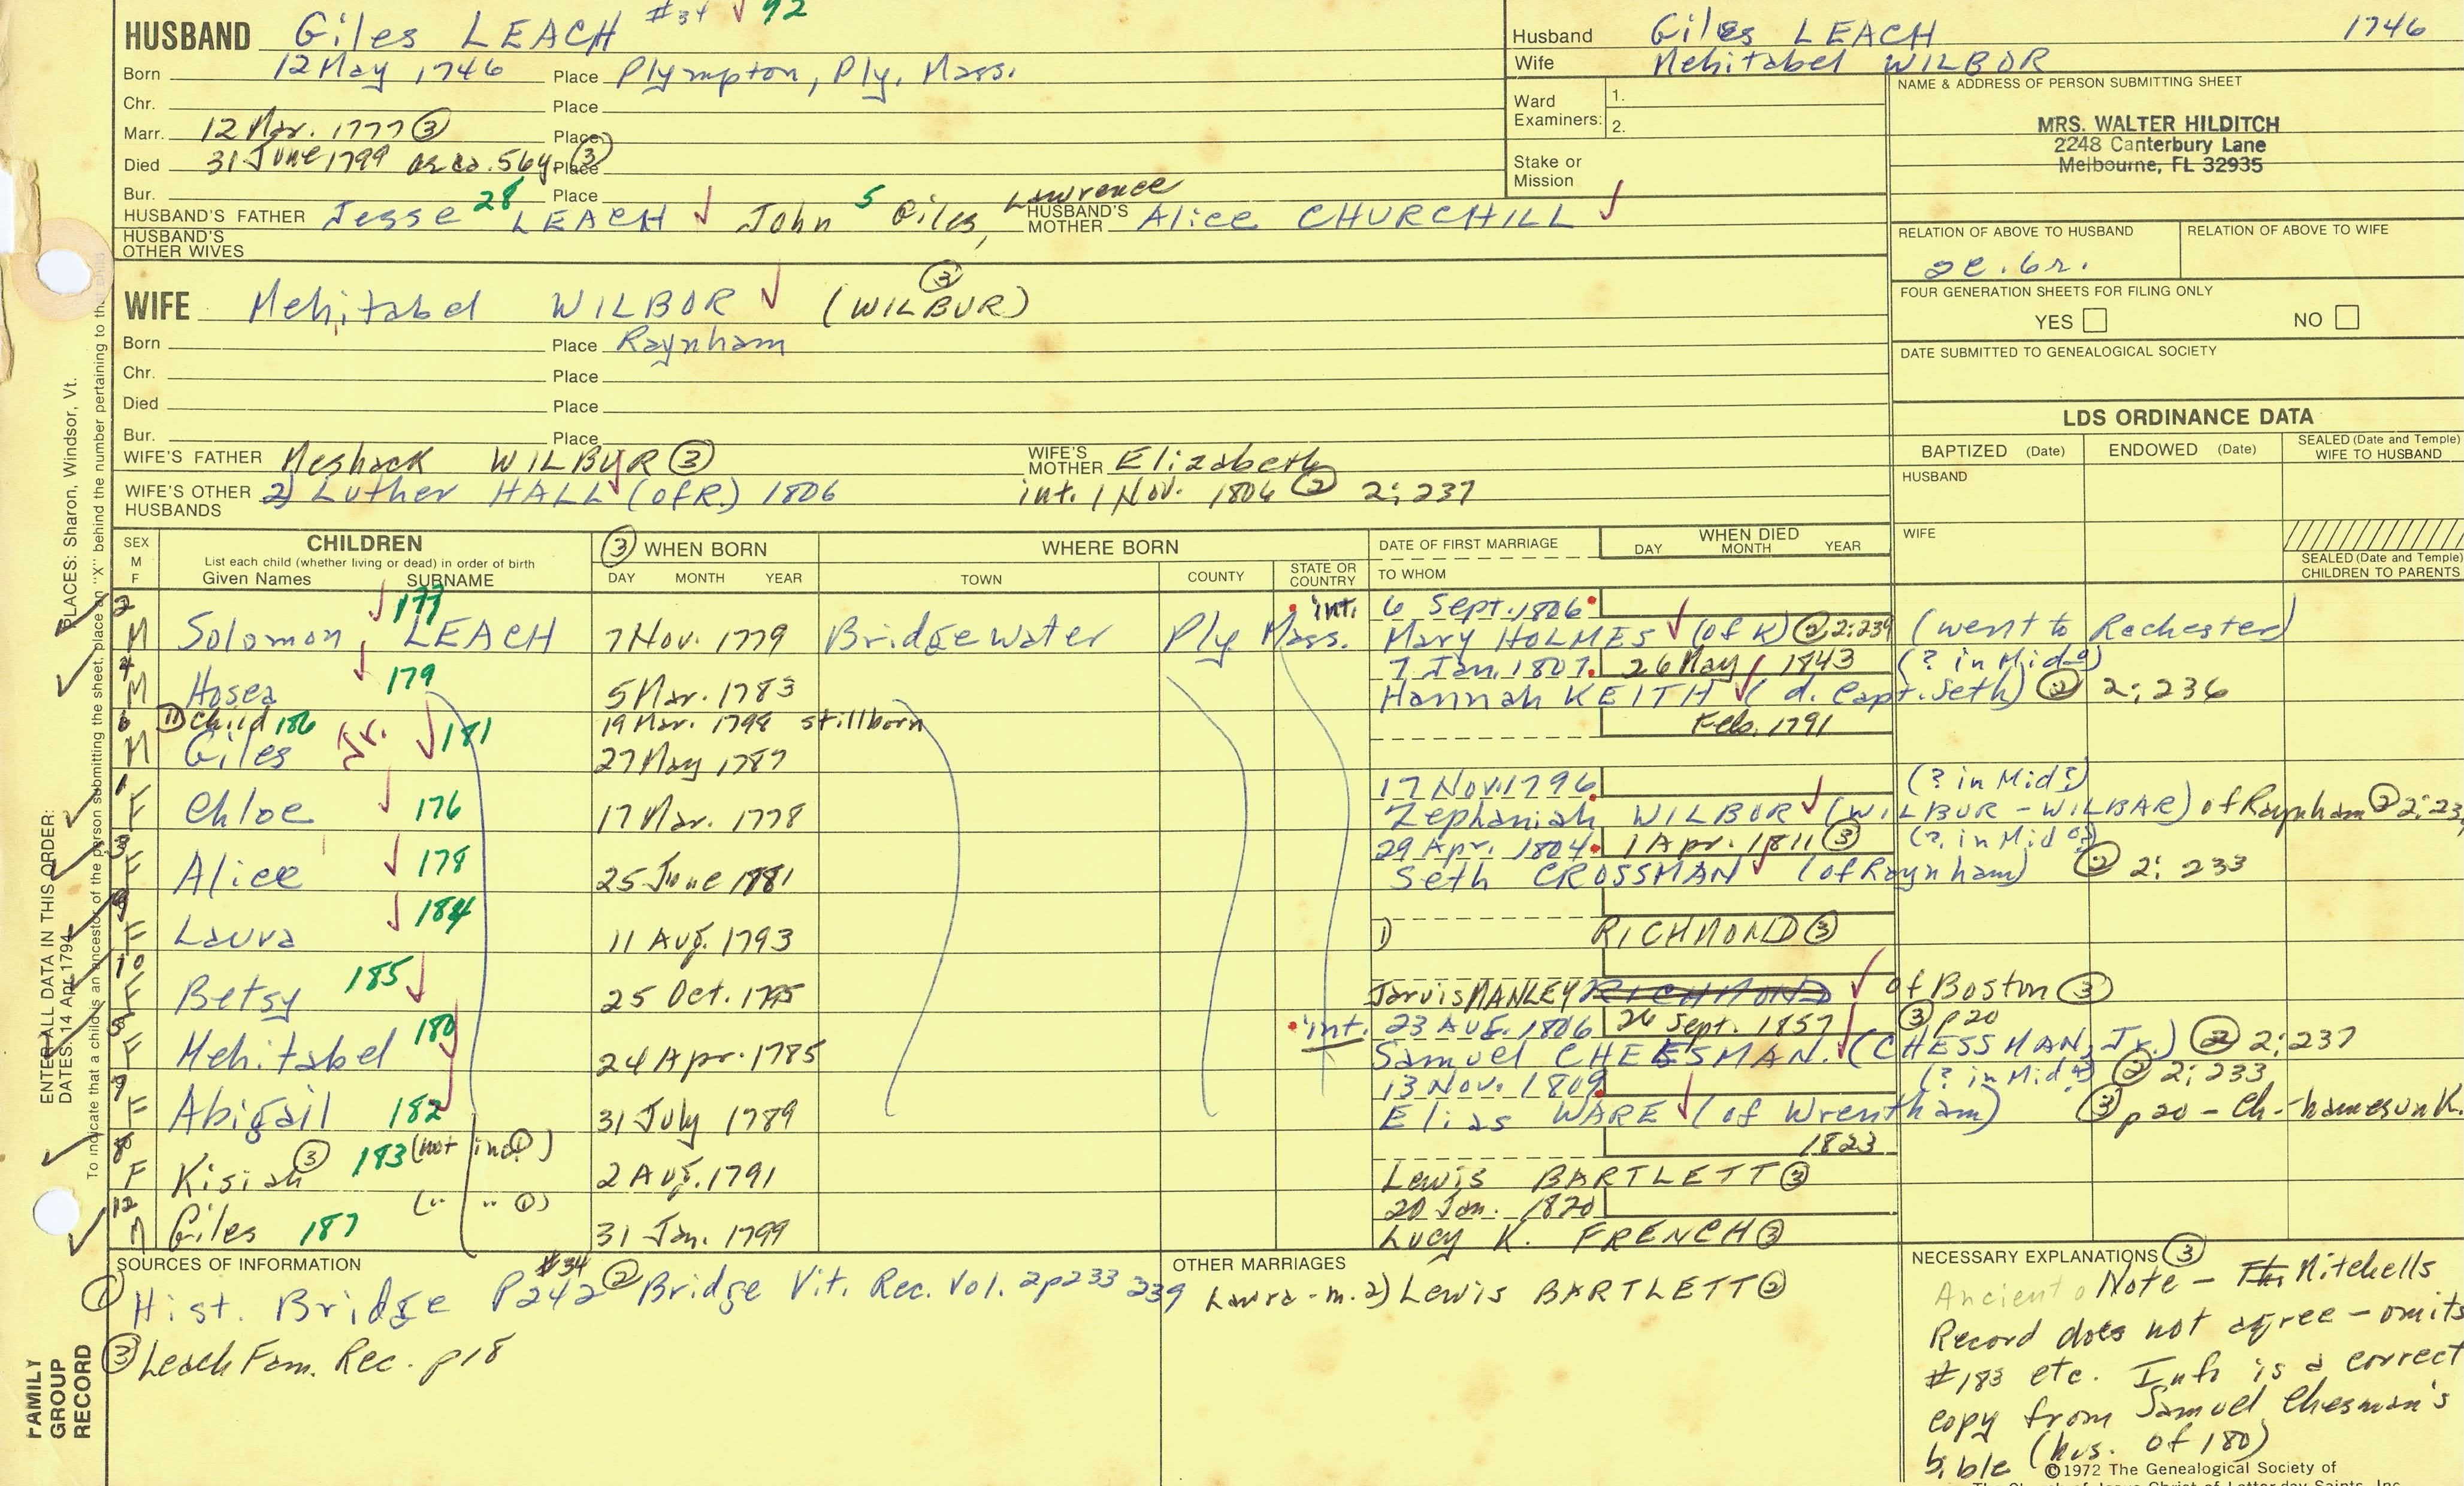 HUSBAND Giles LEACH #34 92
Born 12 May 1746 Place Plympton, Ply. Mass.
Chr. Place
Marr. 12 Mar. 1777 ③ Place
Died 31 June 1799 as ca. 56y. Place ③
Bur. Place
HUSBAND'S FATHER Jesse 28 LEACH John 5 Giles, Lawrence HUSBAND'S MOTHER Alice CHURCHILL
HUSBAND'S OTHER WIVES
Husband Giles LEACH 1746
Wife Mehitabel WILBOR
Ward Examiners: 1.
2.
Stake or Mission
NAME & ADDRESS OF PERSON SUBMITTING SHEET
MRS. WALTER HILDITCH
2248 Canterbury Lane
Melbourne, FL 32935
RELATION OF ABOVE TO HUSBAND RELATION OF ABOVE TO WIFE
FOUR GENERATION SHEETS FOR FILING ONLY
YES NO
DATE SUBMITTED TO GENEALOGICAL SOCIETY
WIFE Mehitabel WILBOR (WILBUR) ③
Born Place Raynham
Chr. Place
Died Place
Bur. Place
WIFE'S FATHER Meshack WILBUR ③ WIFE'S MOTHER Elizabeth
WIFE'S OTHER HUSBANDS 2) Luther HALL (of R.) 1806 int. 1 Nov. 1806 ② 2:237
LDS ORDINANCE DATA
BAPTIZED (Date) ENDOWED (Date) SEALED (Date and Temple) WIFE TO HUSBAND
HUSBAND
WIFE
SEALED (Date and Temple) CHILDREN TO PARENTS
SEX M F CHILDREN List each child (whether living or dead) in order of birth Given Names SURNAME
③ WHEN BORN DAY MONTH YEAR
WHERE BORN TOWN COUNTY STATE OR COUNTRY
DATE OF FIRST MARRIAGE TO WHOM
WHEN DIED DAY MONTH YEAR
2 177 int. 6 Sept. 1806
M Solomon LEACH 7 Nov. 1779 Bridgewater Ply Mass. Mary HOLMES (of K) ② 2:239 (went to Rochester)
4 179 7 Jan. 1807. 26 May 1843 (? in Mid)
M Hosea 5 Mar. 1783 Hannah KEITH (d. Capt. Seth) ② 2:236
6 11 child 186 19 Mar. 1798 stillborn Feb. 1791
M Giles Jr. 181 27 May 1787
1 17 Nov. 1796 (? in Mid)
F Chloe 176 17 Mar. 1778 Zephaniah WILBOR (WILBUR - WILBAR) of Raynham ② 2:23
3 29 Apr. 1804 1 Apr. 1811 ③ (? in Mid)
F Alice 178 25 June 1781 Seth CROSSMAN (of Raynham) ② 2:233
9 184
F Laura 11 Aug. 1793 1) RICHMOND ③
10
F Betsy 185 25 Oct. 1795 Jarvis MANLEY RICHMOND of Boston ③
5 180 int. 23 Aug. 1806 26 Sept. 1857 ③ p20
F Mehitabel 24 Apr. 1785 Samuel CHEESMAN. (CHESSMAN, Jr.) ② 2:237
7 13 Nov. 1809 (? in Mid) ② 2:233
F Abigail 182 31 July 1789 Elias WARE (of Wrentham) ③ p20 - Ch.
8 183 (not in ①) 1823
F Kisiah ③ 2 Aug. 1791 Lewis BARTLETT ③
12 (" " ①) 20 Jan. 1820
M Giles 187 31 Jan. 1799 Lucy K. FRENCH ③
SOURCES OF INFORMATION
① Hist. Bridge P242 #34 ② Bridge Vit. Rec. Vol. 2 p233 239
③ Leach Fam. Rec. p18
OTHER MARRIAGES
Laura - m. 2) Lewis BARTLETT ②
NECESSARY EXPLANATIONS ③
Ancient Note - Mitchells
Record does not agree - omits
#183 etc. Info is a correct
copy from Samuel Chesman's
bible (hus. of 180)
©1972 The Genealogical Society of
The Church of Jesus Christ of Latter-day Saints, Inc.
FAMILY GROUP RECORD
ENTER ALL DATA IN THIS ORDER:
DATES: 14 Apr 1794
PLACES: Sharon, Windsor, Vt.
To indicate that a child is an ancestor of the person submitting the sheet, place an "X" behind the number pertaining to that child.